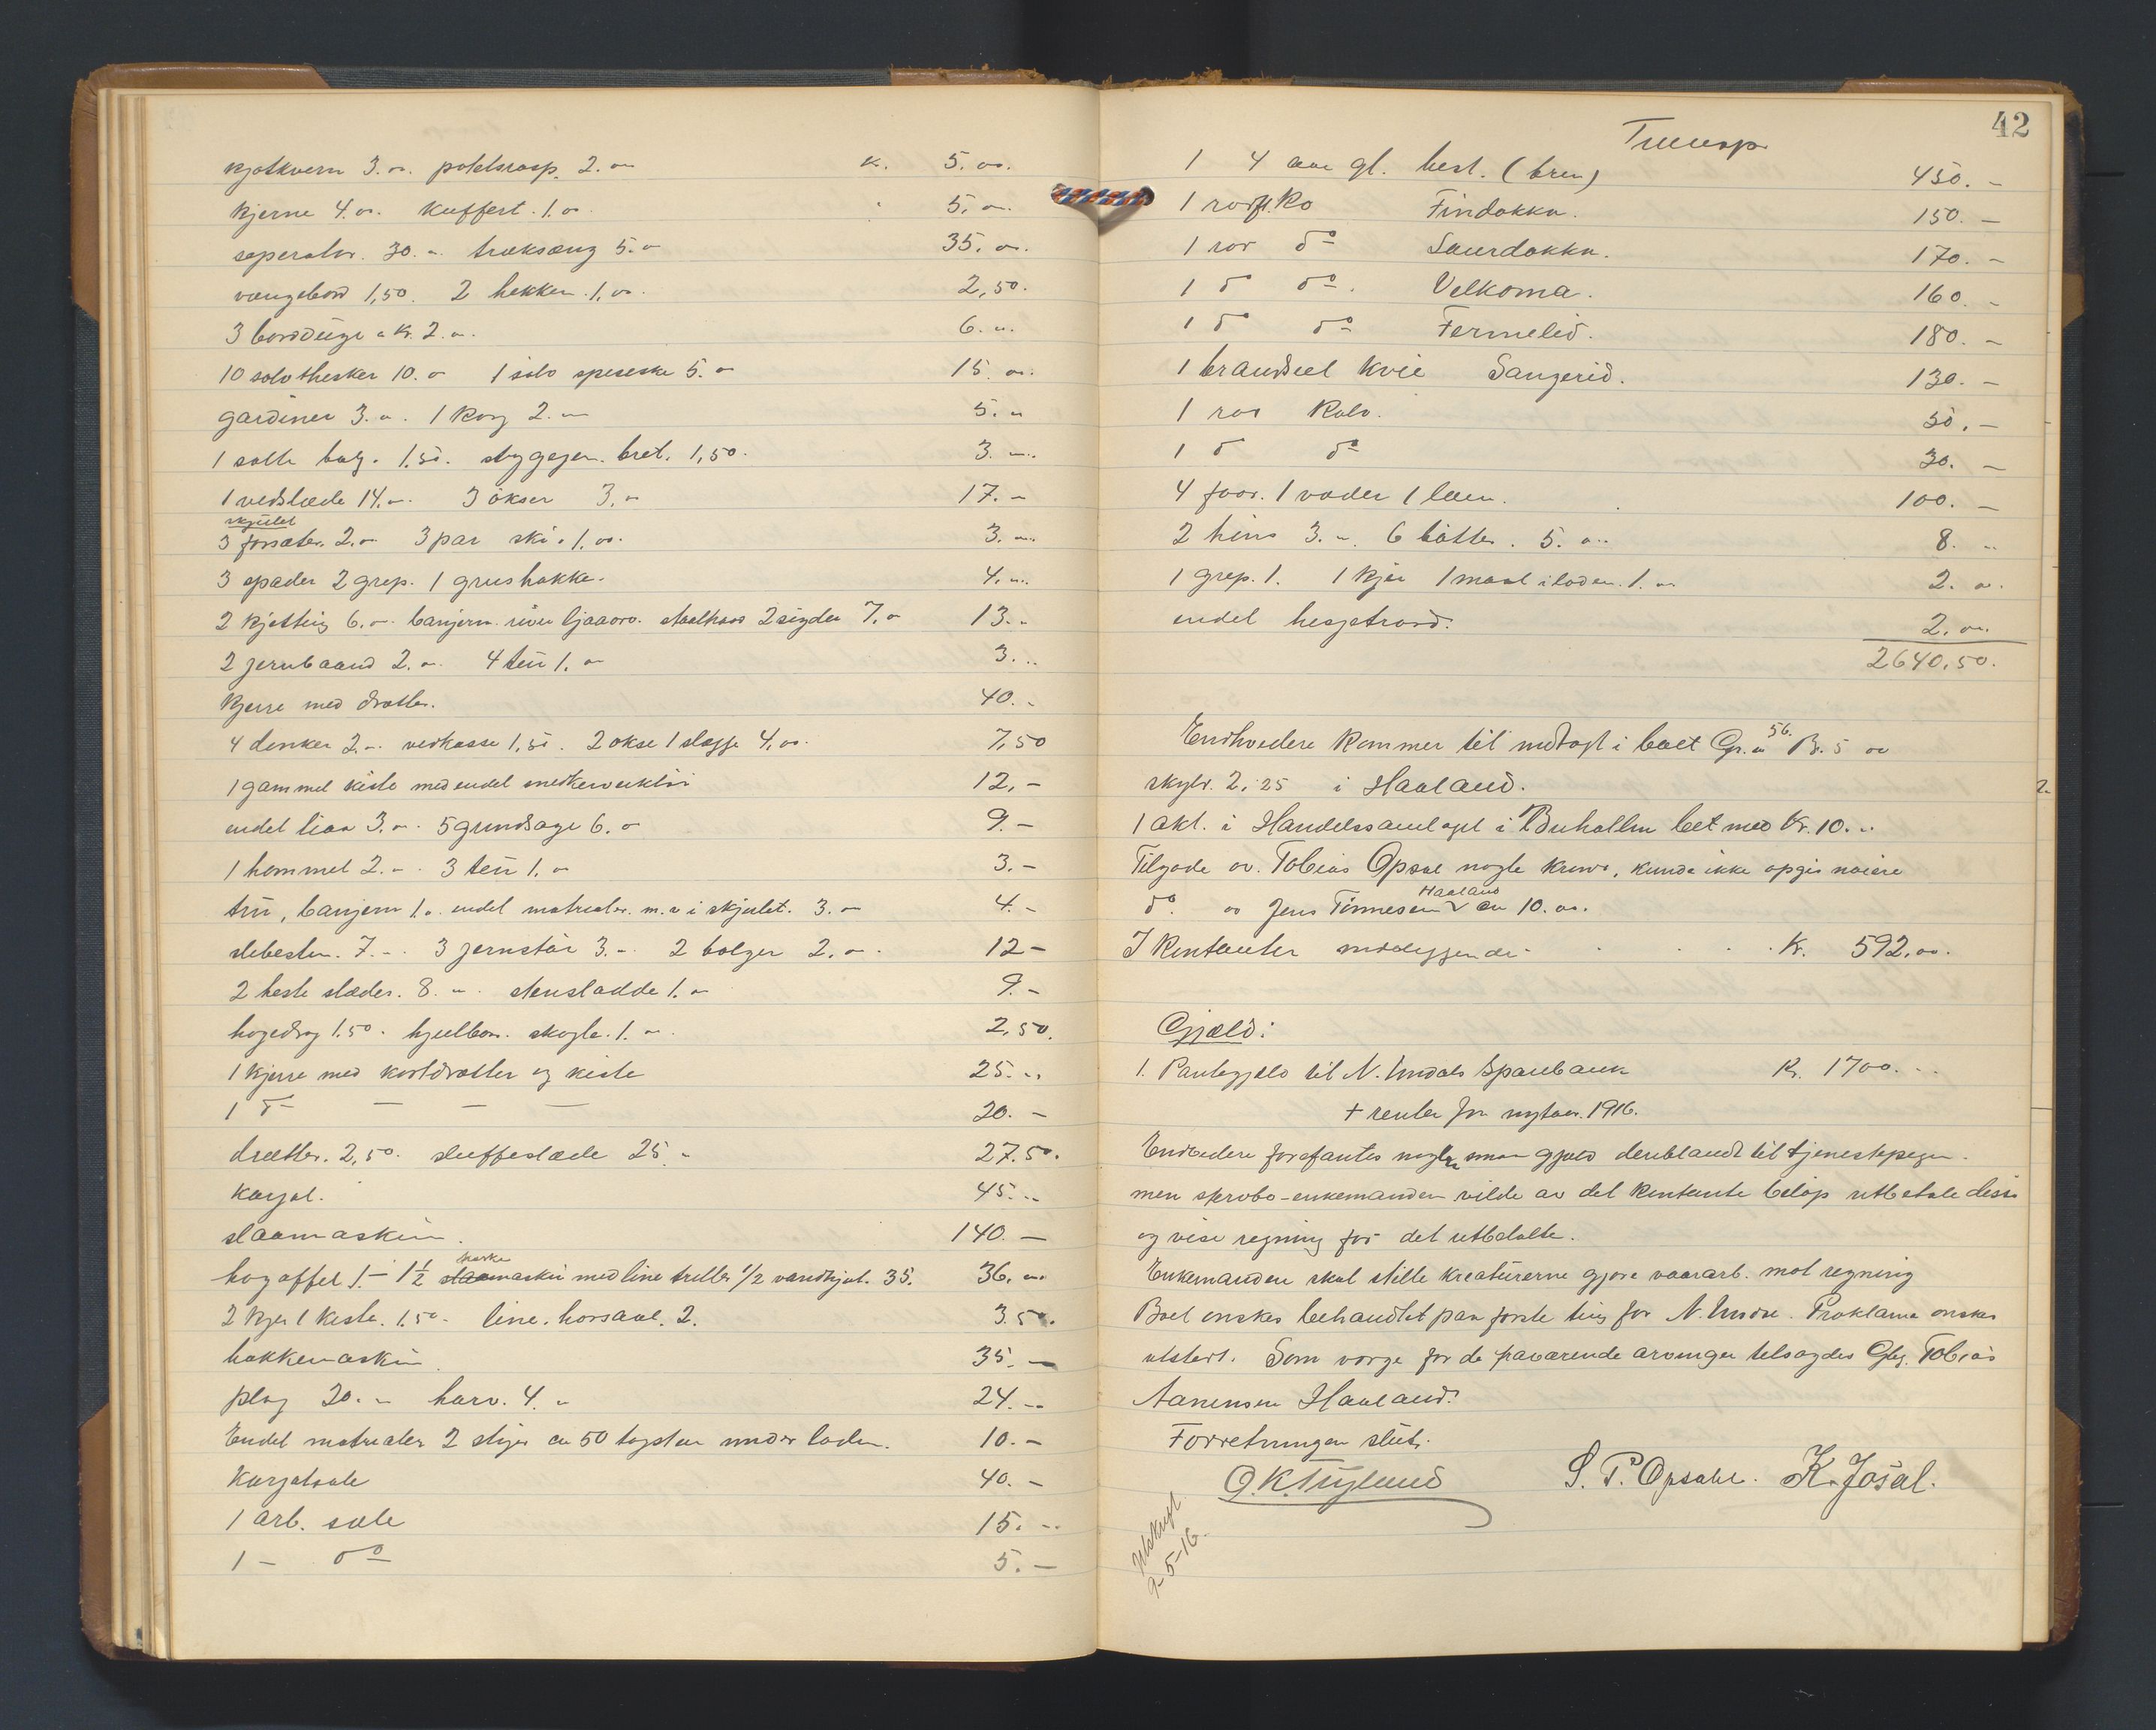 kjøtkvern 3.00. potetsrasp. 2.00 K. 5.00.
kjerne 4.00. kuffert. 1.00. 5.00.
seperator. 30.00 træksæng 5.00 35.00.
vængebord 1,50. 2 hekker. 1.00. 2,50.
3 borddüge a Kr. 2.00. 6.00.
10 sølv theskeer 10.00 1 sølv speseske 5.00 15.00.
gardiner 3.00. 1 korg 2.00 5.00
1 salte balg. 1.50. bret. 1,50. 3.00.
1 vedslæde 14.00. 3 økser 3.00 17.-
skjulet
3 forsæter. 2.00 3 par ski. 1.00. 3.00.
3 spader 2 grep. 1 grushakke. 4.00.
2 kjetting 6.00. banjern. river ljaaorv. 2 sigder 7.00 13.-
2 jernbaand 2.00. 4 1.00 3...
kjerre med drætter. 40.-
4 dunker 2.00. vedkasse 1,50. 2 økse 1 slægge 4.00. 7,50
1 gammel kiste med endel snedkerverktøi 12,-
endel liaa 3.00. 5 grindsage 6.00 9.-
1 hommel 2.-. 3 1.00 3.-
banjern 1.00. endel matrialer. m.v i skjulet. 3.00 4.-
slibesten. 7.-. 3 jernstör 3.-. 2 bolger 2.00. 12-
2 heste slæder. 8.00. stensladde 1.00 9.-
hogedrog 1.50. hjulbør. skogle. 1.00. 2,50.
1 kjerre med kortdrætter og kiste 25...
1 do — — — 20.-
drætter. 2,50. sluffeslæde 25.- 27.50.
karjol. 45...
slaamaskin. 140.-
høgaffel 1.- 1 1/2 slaamaskin haske med line triller 1/2 vandhjul. 35. 36.00
2 kjer 1 kiste. 1.50. line. horsaal. 2. 3.50.
hakkemaskin. 35.-
plog 20.- harv. 4.00 24.--
Endel matrialer 2 stiger ca 50 tagsten under loden. 10.-
Karjolsale 40.-
1 arb. sale 15.--
1 - do 5.-
42
Transp.
1 4 aar gl. hest. (brun) 450.-
1 rødfl. ko Findokka. 150.-
1 rød do Saurdokka. 170.-
1 do do. Velkoma. 160.-
1 do do Fermelid. 180.-
1 brandseel kvie Sangerid. 130.-
1 rød kalv. 30.-
1 do do 30.-
4 foor. 1 væder 1 lam. 100.-
2 høns 3.-. 6 bøtter. 5.00. 8.00
1 grep. 1. 1 kjer 1 maal i loden. 1.00 2.00.
endel hesjetraad. 2.00.
2640,50.
Endvidere kommer til indtægt i boet Gr.n 56. B. 5 av
skyld. 2.25 i Haaland.
1 akt. i Handelssamlaget i Buhølen bet. med Kr. 10...
Tilgode av. Tobias Opsal nogle kroner, kunde ikke opgis nøiere
do. av Jens Tönnesen Haaland ca 10.00.
I kontanter indeliggende . . . . Kr. 592.00.
Gjæld:
1. Pantegjeld til N. Undals Sparebank Kr. 1700...
+ renter fra nytaar. 1916.
Endvidere forefantes nogle smaa gjæld deriblandt til tjenestepigen.
men stervbo-enkemanden vilde av det kontante beløp utbetale disse
og vise regning for det utbetalte.
Enkemanden skal stille kreatürerne gjøre vaararb. mot regning
Boet ønskes behandlet paa første ting for N. Undal. Proklama ønskes
utstedt. Som værge for de fraværende arvinger tilsagdes Gbr. Tobias
Aanensen Haaland.
Forretningen slut.
O.K. Tryland S. T. Opsahl. K. Josal.
Utskrift
2-5-16.